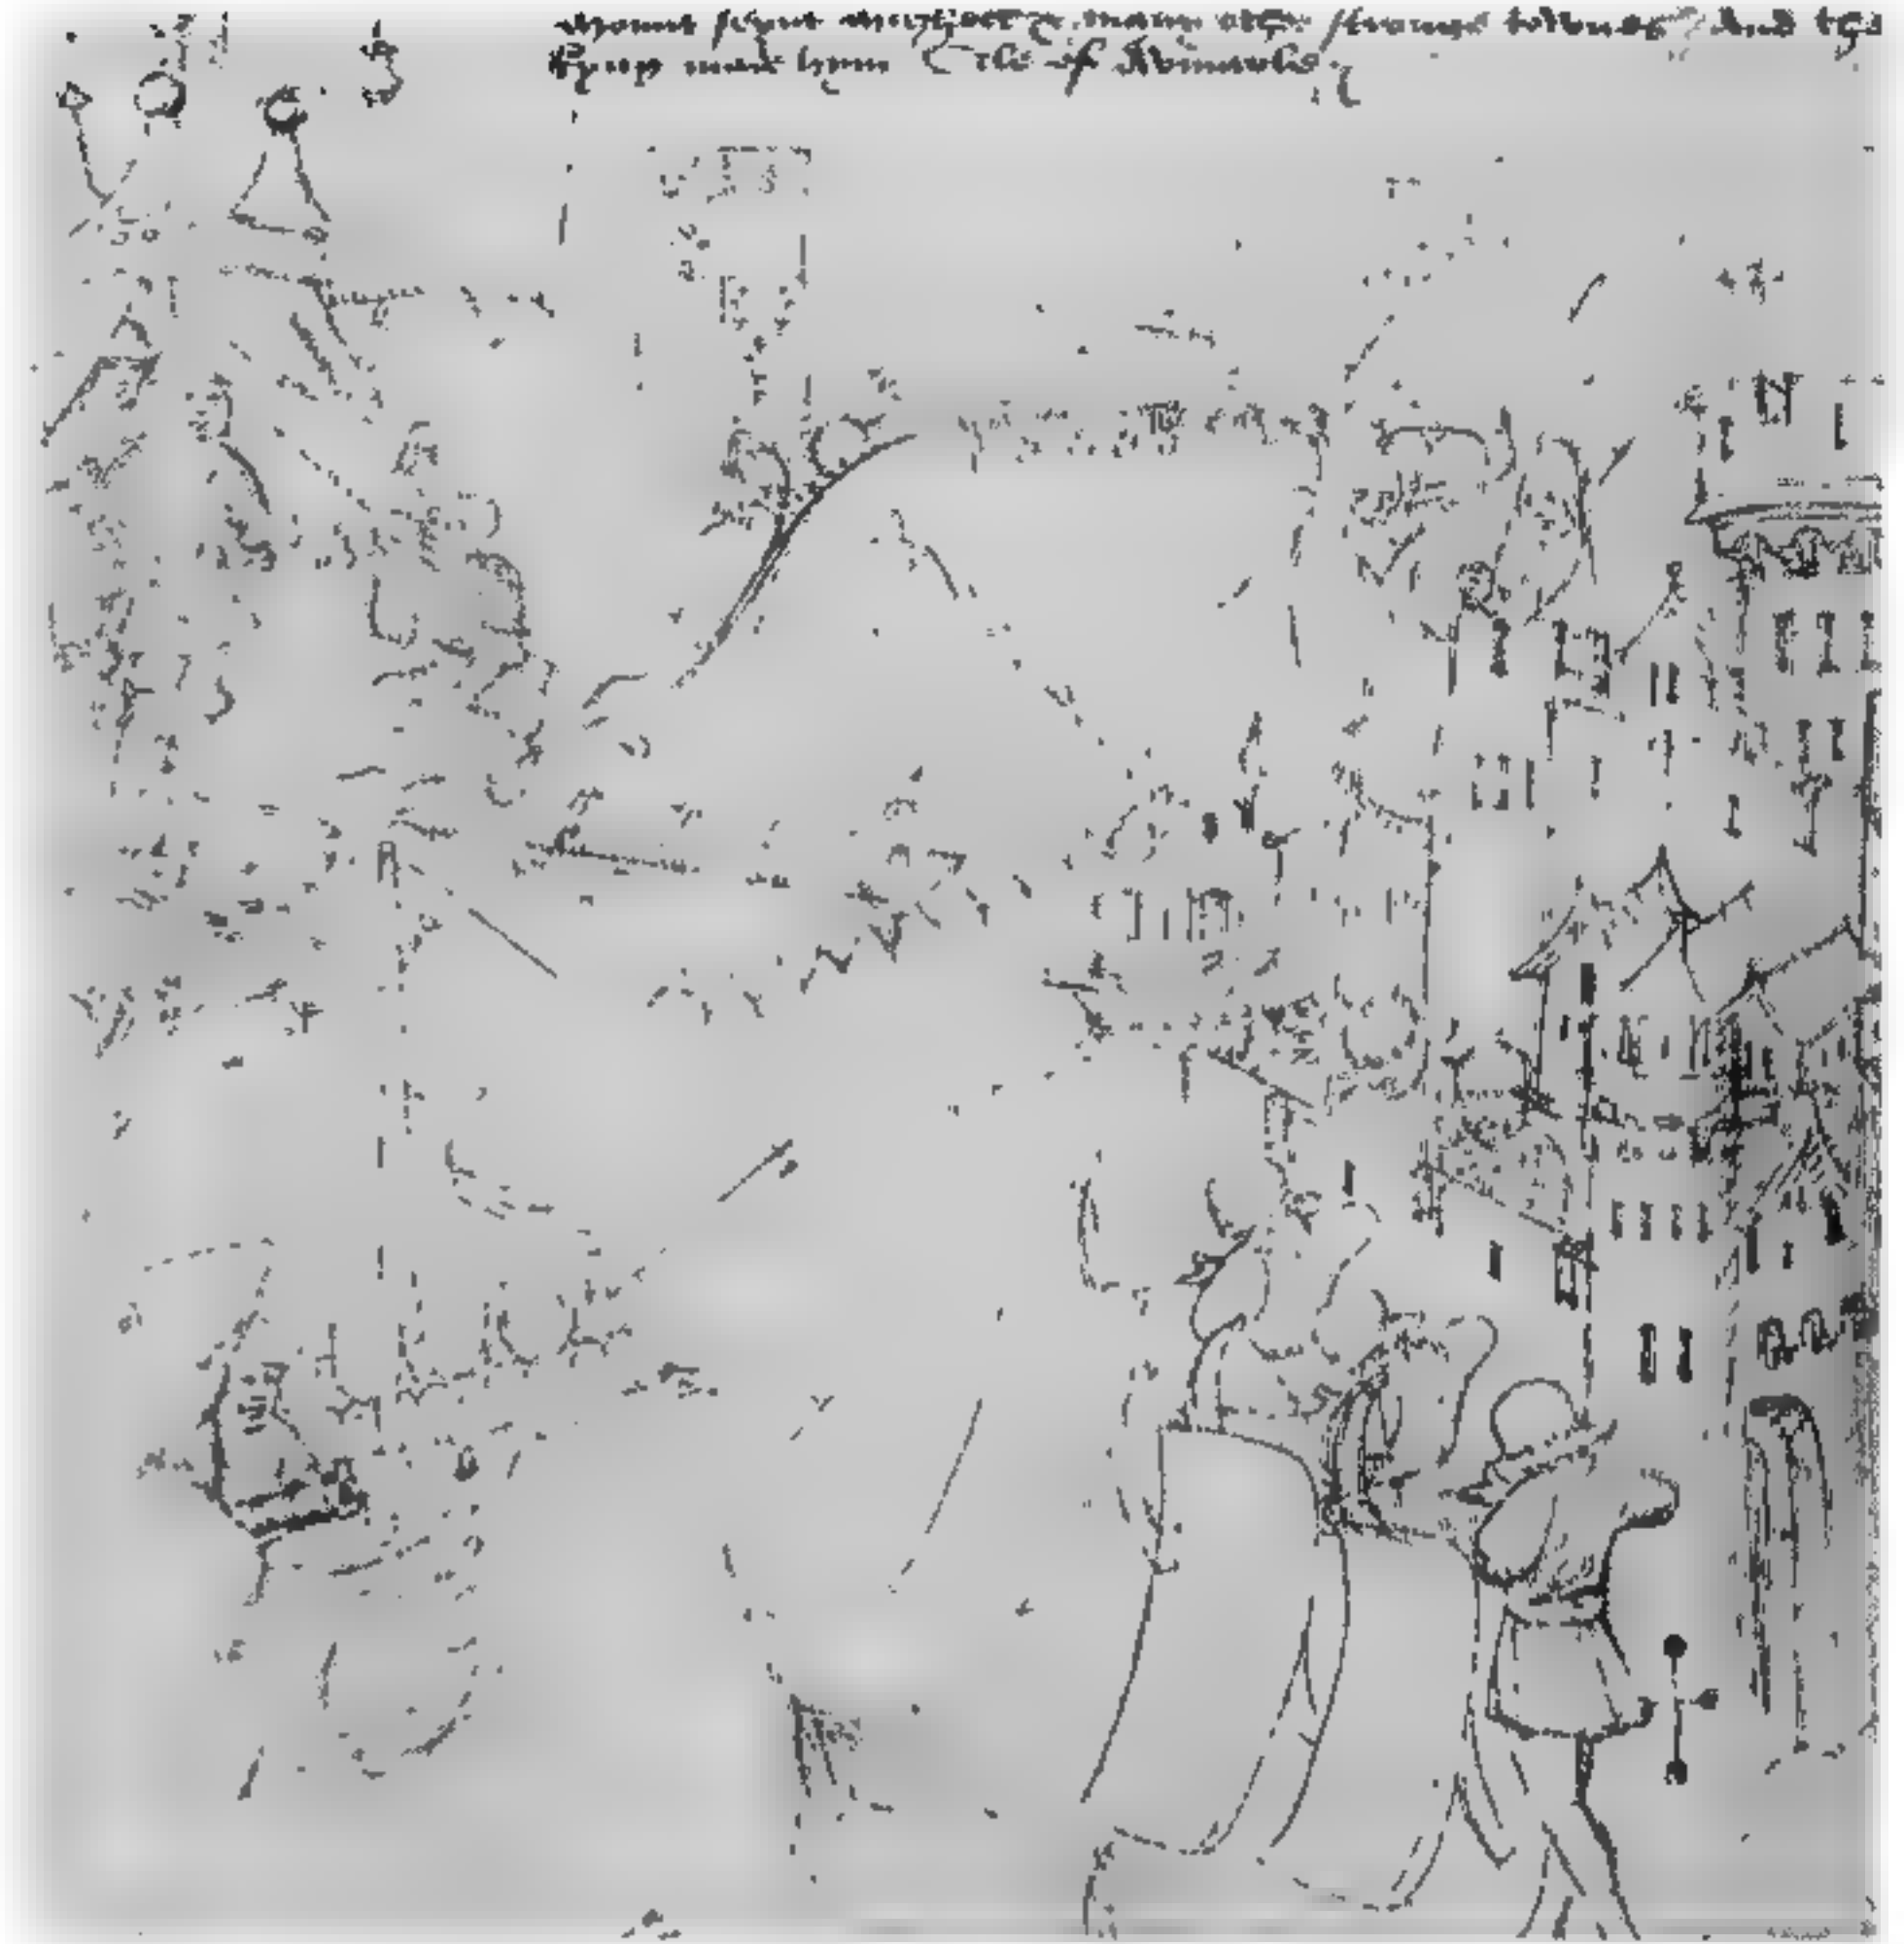 Mount seynt & many stronge townes And the
kyng made hym Erle of Aumarle